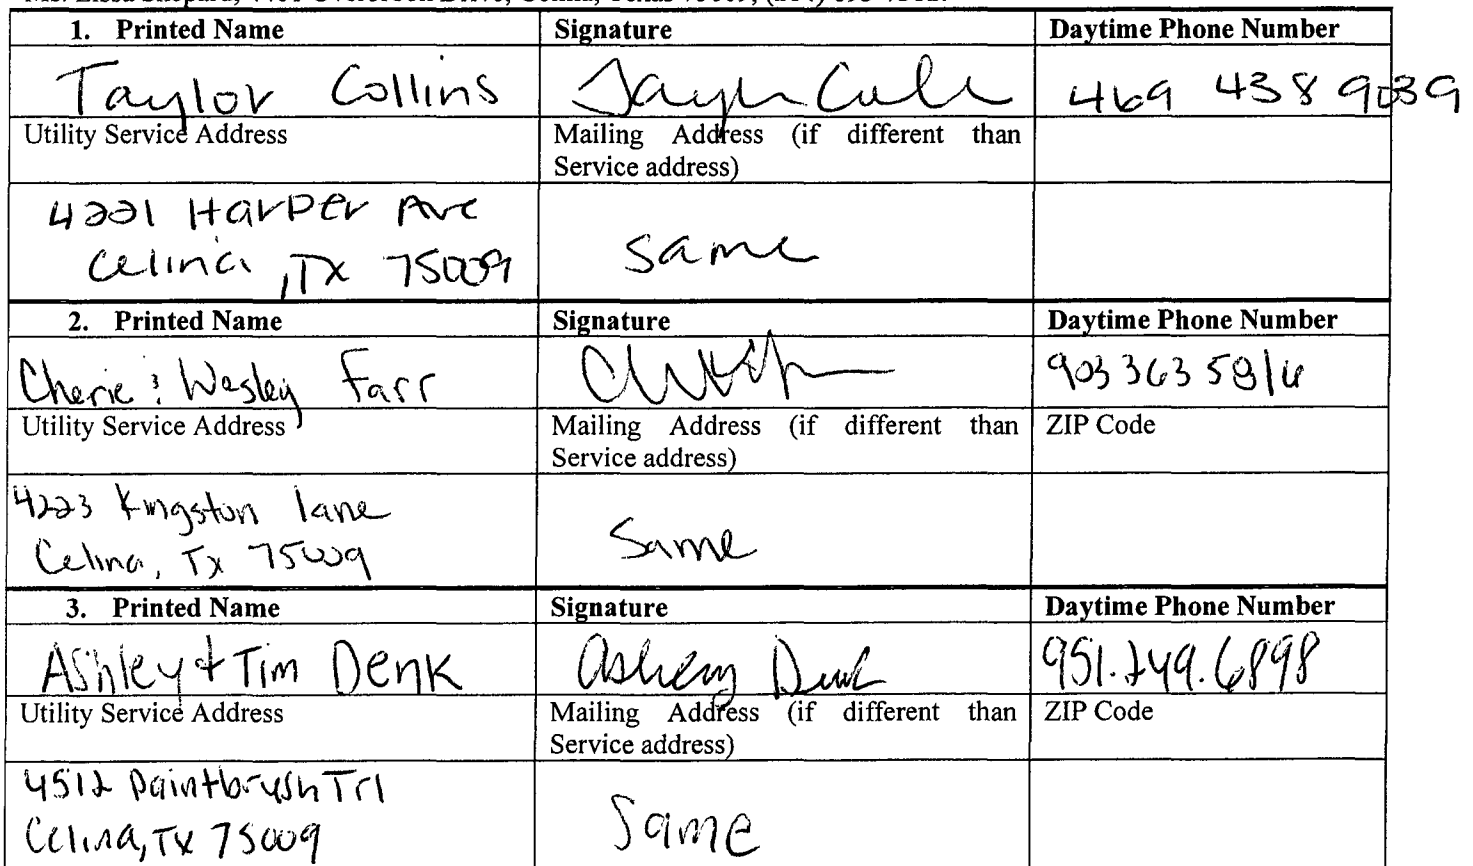 1. Printed Name Signature Daytime Phone Number
Taylor Collins 469 438 9039
Utility Service Address Mailing Address (if different than
Service address)
4221 Harper Ave
Celina, TX 75009 same
2. Printed Name Signature Daytime Phone Number
Cherie & Wesley Farr 903 363 5816
Utility Service Address Mailing Address (if different than ZIP Code
Service address)
4223 Kingston lane
Celina, Tx 75009 Same
3. Printed Name Signature Daytime Phone Number
Ashley + Tim Denk Ashley Denk 951.249.6898
Utility Service Address Mailing Address (if different than ZIP Code
Service address)
4512 Paintbrush Trl
Celina, TX 75009 Same